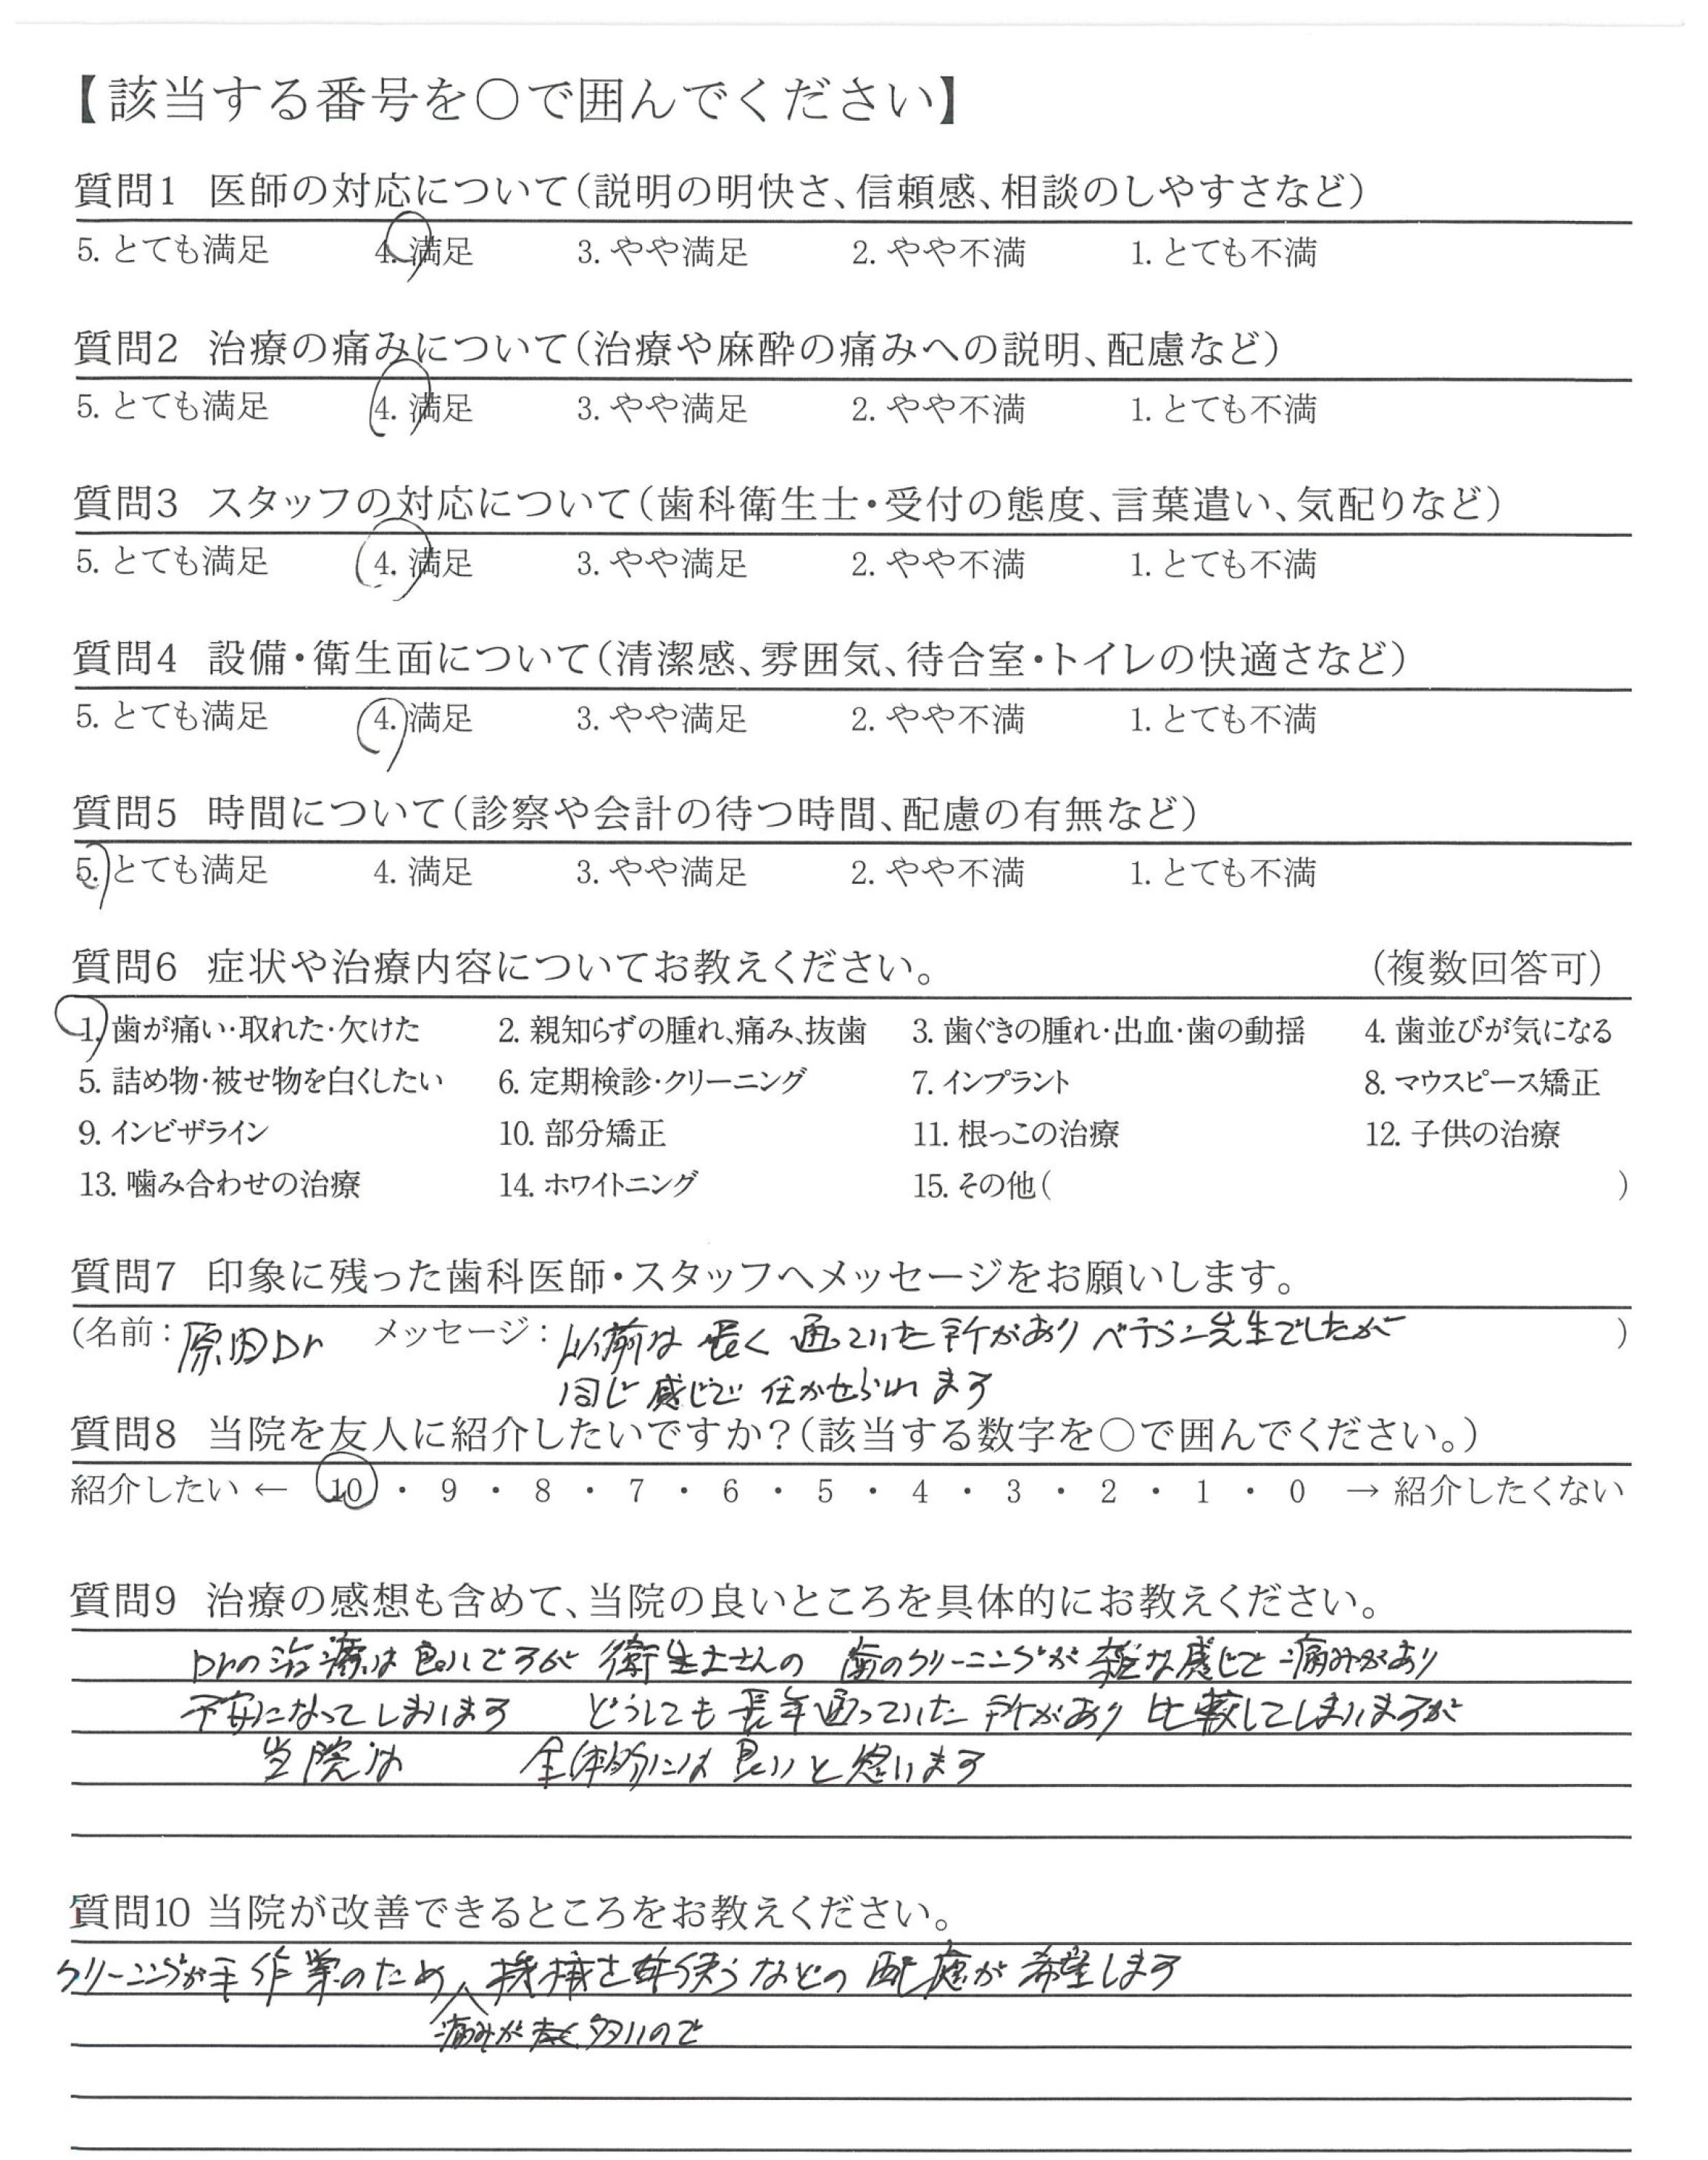 【該当する番号を〇で囲んでください】
質問1 医師の対応について(説明の明快さ、信頼感、相談のしやすさなど)
5. とても満足 4. 満足 3. やや満足 2. やや不満 1. とても不満
質問2 治療の痛みについて(治療や麻酔の痛みへの説明、配慮など)
5. とても満足 4. 満足 3. やや満足 2. やや不満 1. とても不満
質問3 スタッフの対応について(歯科衛生士・受付の態度、言葉遣い、気配りなど)
5. とても満足 4. 満足 3. やや満足 2. やや不満 1. とても不満
質問4 設備・衛生面について(清潔感、雰囲気、待合室・トイレの快適さなど)
5. とても満足 4. 満足 3. やや満足 2. やや不満 1. とても不満
質問5 時間について(診察や会計の待つ時間、配慮の有無など)
5. とても満足 4. 満足 3. やや満足 2. やや不満 1. とても不満
質問6 症状や治療内容についてお教えください。 (複数回答可)
1. 歯が痛い・取れた・欠けた 2. 親知らずの腫れ、痛み、抜歯 3. 歯ぐきの腫れ・出血・歯の動揺 4. 歯並びが気になる
5. 詰め物・被せ物を白くしたい 6. 定期検診・クリーニング 7. インプラント 8. マウスピース矯正
9. インビザライン 10. 部分矯正 11. 根っこの治療 12. 子供の治療
13. 噛み合わせの治療 14. ホワイトニング 15. その他( )
質問7 印象に残った歯科医師・スタッフへメッセージをお願いします。
(名前: 原田Dr メッセージ: 以前は長く通っていた所がありベテラン先生でしたが )
同じ感じで任かせられます
質問8 当院を友人に紹介したいですか?(該当する数字を〇で囲んでください。)
紹介したい ← 10 ・ 9 ・ 8 ・ 7 ・ 6 ・ 5 ・ 4 ・ 3 ・ 2 ・ 1 ・ 0 → 紹介したくない
質問9 治療の感想も含めて、当院の良いところを具体的にお教えください。
Drの治療は良いですが 衛生士さんの 歯のクリーニングが雑な感じで痛みがあり
不安になってしまいます どうしても長年通っていた所があり比較してしまいますが
当院は 全体的には良いと思います
質問10 当院が改善できるところをお教えください。
クリーニングが手作業のため 機械を使うなどの配慮が希望します
痛みが 多いので